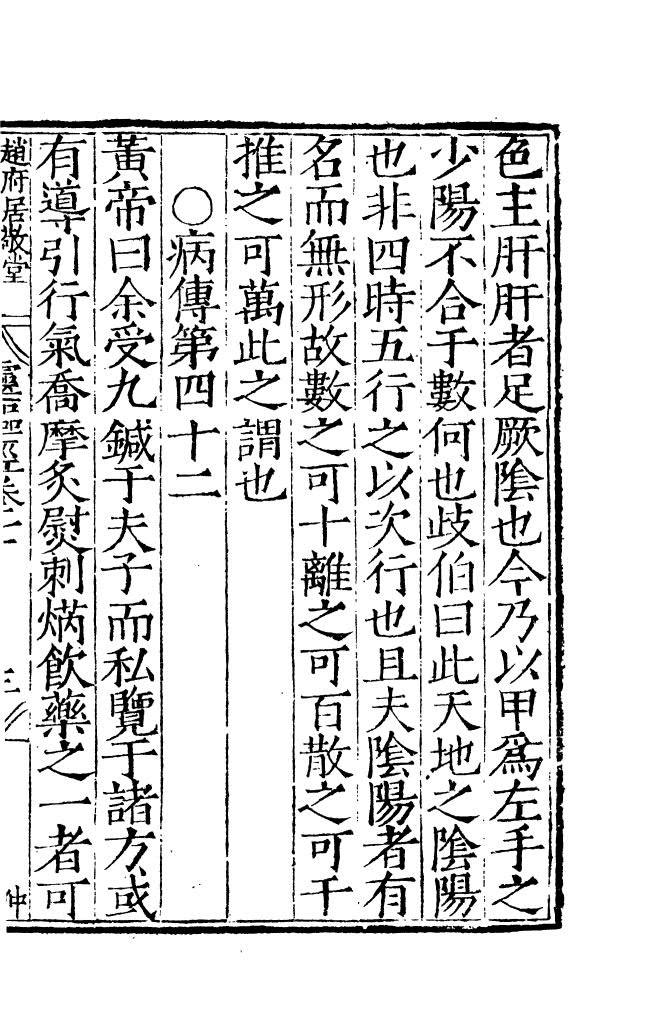 色主肝肝者足厥陰也今乃以甲爲左手之
少陽不合于數何也歧伯曰此天地之陰陽
也非四時五行之以次行也且夫陰陽者有
名而無形故數之可十離之可百散之可千
推之可萬此之謂也
○病傳第四十二
黃帝曰余受九鍼于夫子而私覽于諸方或
有導引行氣喬摩灸熨刺焫飲藥之一者可
趙府居敬堂
仲